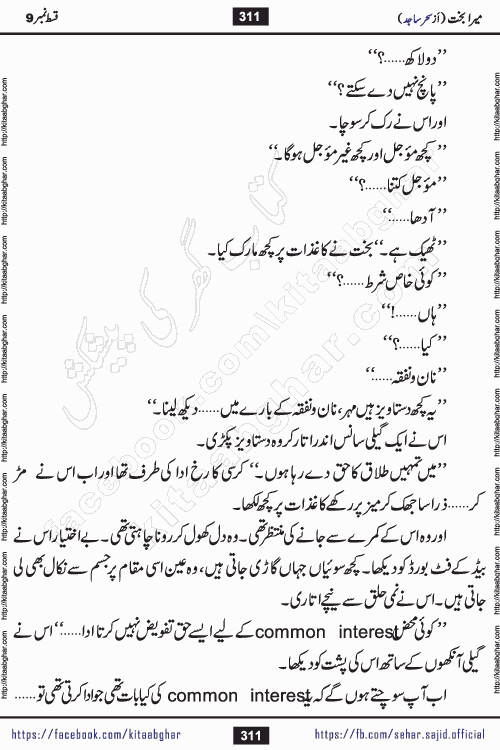 میرا بخت (از سحر ساجد)
311
قسط نمبر 9
’’دو لاکھ......؟‘‘
’’پانچ نہیں دے سکتے؟‘‘
اور اس نے رک کر سوچا۔
’’کچھ مؤجل اور کچھ غیر مؤجل ہوگا۔‘‘
’’مؤجل کتنا......؟‘‘
’’آدھا.....‘‘
’’ٹھیک ہے۔‘‘ بخت نے کاغذات پر کچھ مارک کیا۔
’’کوئی خاص شرط......؟‘‘
’’ہاں......!‘‘
’’کیا......؟‘‘
’’نان و نفقہ......‘‘
’’یہ کچھ دستاویز ہیں مہر، نان و نفقہ کے بارے میں......دیکھ لینا۔‘‘
اس نے ایک گیلی سانس اندر اتار کر وہ دستاویز پکڑی۔
’’میں تمہیں طلاق کا حق دے رہا ہوں۔‘‘ کرسی کا رخ ادا کی طرف تھا اور اب اس نے مڑ
کر......ذرا سا جھک کر میز پر رکھے کاغذات پر کچھ لکھا۔
اور وہ اس کے کمرے سے جانے کی منتظر تھی۔ وہ دل کھول کر رونا چاہتی تھی۔ بے اختیار اس نے
بیڈ کے فٹ بورڈ کو دیکھا۔ کچھ سوئیاں جہاں گاڑی جاتی ہیں، وہ عین اسی مقام پر جسم سے نکال بھی لی
جاتی ہیں۔ اس نے نمی حلق سے نیچے اتاری۔
’’کوئی محض common interest کے لیے ایسے حق تفویض نہیں کرتا ادا......‘‘ اس نے
گیلی آنکھوں کے ساتھ اس کی پشت کو دیکھا۔
اب آپ سوچتے ہوں گے کہ یہ common interest کی کیا بات تھی جو ادا کرتی تھی تو......
https://facebook.com/kitaabghar
311
https://fb.com/sehar.sajid.official
http://kitaabghar.com
کتاب گھر کی پیشکش
facebook.com/kitaabghar
kitaabghar.com